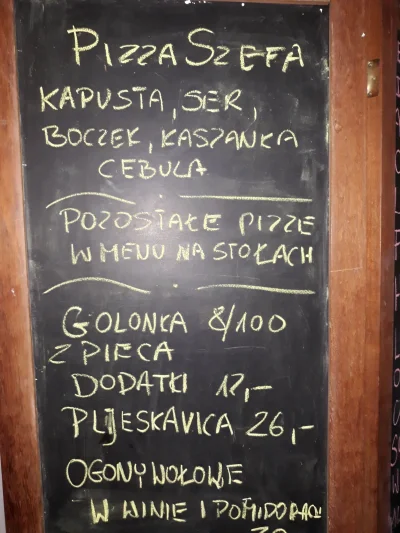 PIZZA SZEFA
KAPUSTA, SER,
BOCZEK, KASZANKA
CEBULA
POZOSTAŁE PIZZE
W MENU NA STOŁACH
GOLONKA 8/100
Z PIECA
DODATKI 12,-
PLJESKAVICA 26,-
OGONY WOŁOWE
W WINIE I POMIDORACH